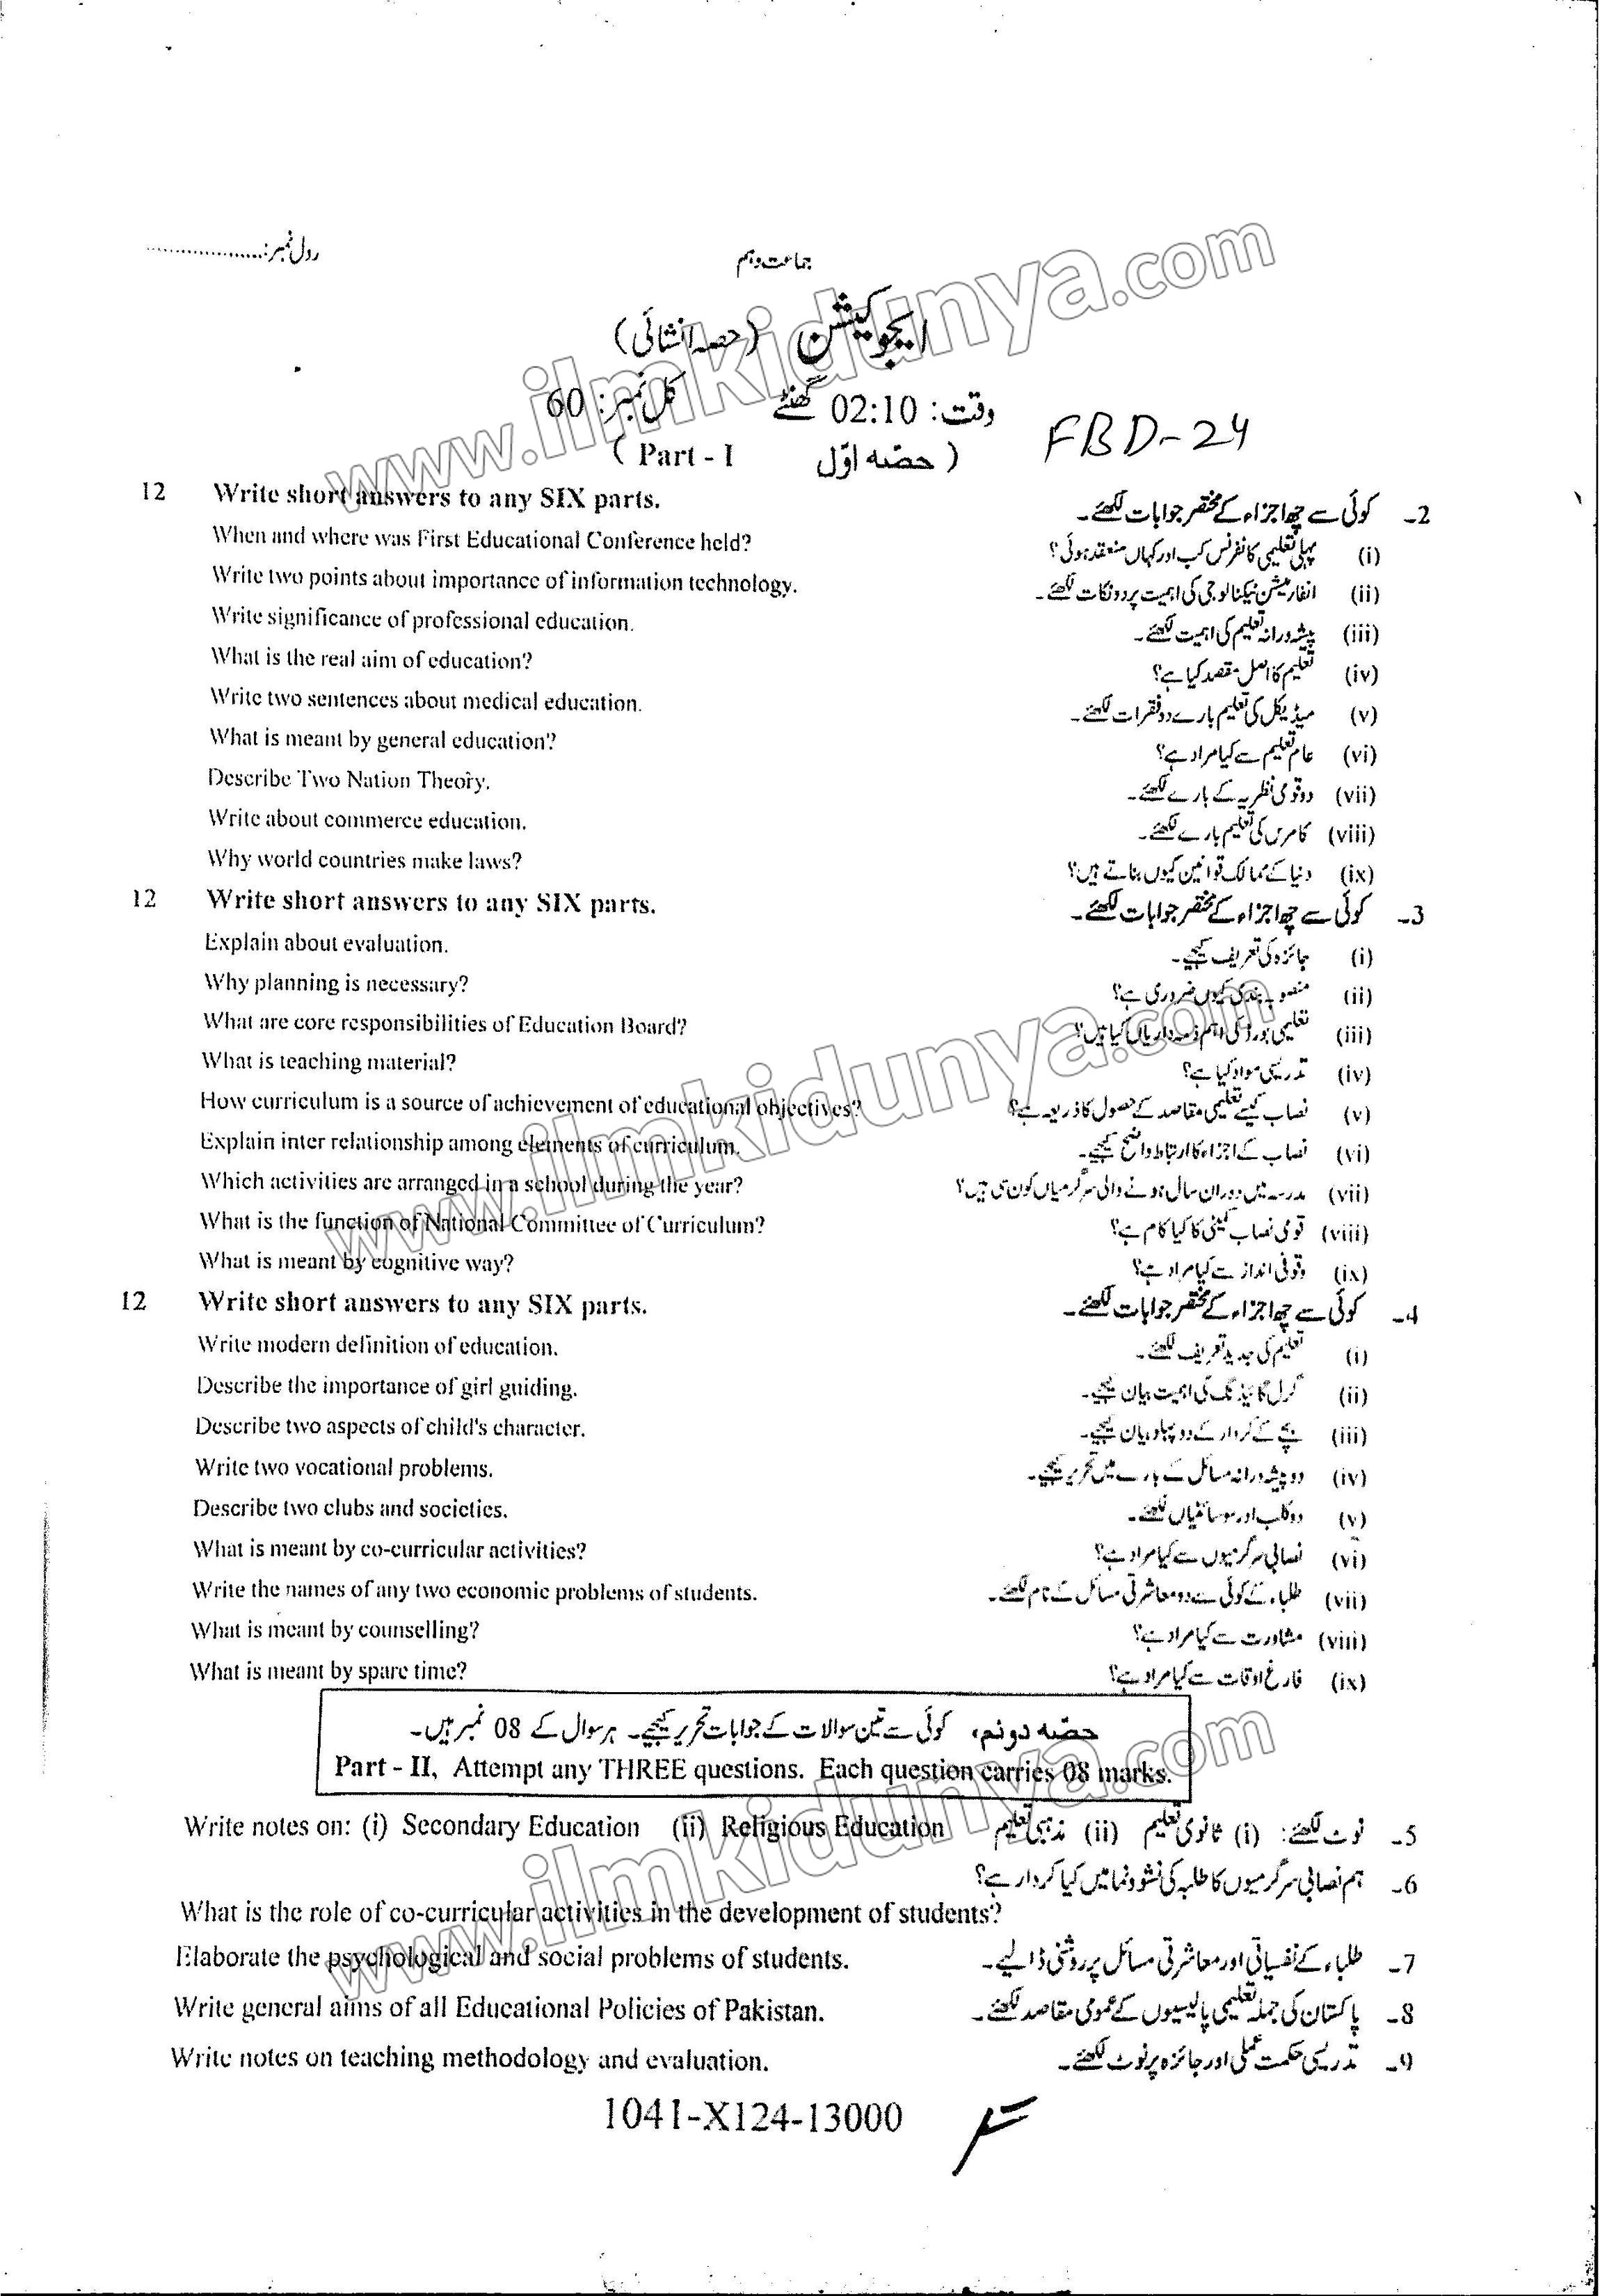 رول نمبر:....................
جماعت دہم
ایجوکیشن (حصہ انشائی)
وقت: 02:10 گھنٹے کل نمبر: 60
FBD-24
( Part - I حصّہ اوّل )
12 Write short answers to any SIX parts. 2- کوئی سے چھ اجزاء کے مختصر جوابات لکھئے۔
When and where was First Educational Conference held? (i) پہلی تعلیمی کانفرنس کب اور کہاں منعقد ہوئی؟
Write two points about importance of information technology. (ii) انفارمیشن ٹیکنالوجی کی اہمیت پر دو نکات لکھئے۔
Write significance of professional education. (iii) پیشہ ورانہ تعلیم کی اہمیت لکھئے۔
What is the real aim of education? (iv) تعلیم کا اصل مقصد کیا ہے؟
Write two sentences about medical education. (v) میڈیکل کی تعلیم بارے دو فقرات لکھئے۔
What is meant by general education? (vi) عام تعلیم سے کیا مراد ہے؟
Describe Two Nation Theory. (vii) دو قومی نظریہ کے بارے لکھئے۔
Write about commerce education. (viii) کامرس کی تعلیم بارے لکھئے۔
Why world countries make laws? (ix) دنیا کے ممالک قوانین کیوں بناتے ہیں؟
12 Write short answers to any SIX parts. 3- کوئی سے چھ اجزاء کے مختصر جوابات لکھئے۔
Explain about evaluation. (i) جائزہ کی تعریف کیجیے۔
Why planning is necessary? (ii) منصوبہ بندی کیوں ضروری ہے؟
What are core responsibilities of Education Board? (iii) تعلیمی بورڈ کی اہم ذمہ داریاں کیا ہیں؟
What is teaching material? (iv) تدریسی مواد کیا ہے؟
How curriculum is a source of achievement of educational objectives? (v) نصاب کیسے تعلیمی مقاصد کے حصول کا ذریعہ ہے؟
Explain inter relationship among elements of curriculum. (vi) نصاب کے اجزاء کا ارتباط واضح کیجیے۔
Which activities are arranged in a school during the year? (vii) مدرسہ میں دوران سال ہونے والی سرگرمیاں کون سی ہیں؟
What is the function of National Committee of Curriculum? (viii) قومی نصاب کمیٹی کا کیا کام ہے؟
What is meant by cognitive way? (ix) وقوفی انداز سے کیا مراد ہے؟
12 Write short answers to any SIX parts. 4- کوئی سے چھ اجزاء کے مختصر جوابات لکھئے۔
Write modern definition of education. (i) تعلیم کی جدید تعریف لکھئے۔
Describe the importance of girl guiding. (ii) گرل گائیڈنگ کی اہمیت بیان کیجیے۔
Describe two aspects of child's character. (iii) بچے کے کردار کے دو پہلو بیان کیجیے۔
Write two vocational problems. (iv) دو پیشہ ورانہ مسائل کے بارے میں تحریر کیجیے۔
Describe two clubs and societies. (v) دو کلب اور سوسائٹیاں لکھئے۔
What is meant by co-curricular activities? (vi) نصابی سرگرمیوں سے کیا مراد ہے؟
Write the names of any two economic problems of students. (vii) طلباء کے کوئی سے دو معاشرتی مسائل کے نام لکھئے۔
What is meant by counselling? (viii) مشاورت سے کیا مراد ہے؟
What is meant by spare time? (ix) فارغ اوقات سے کیا مراد ہے؟
حصّہ دوئم، کوئی سے تین سوالات کے جوابات تحریر کیجیے۔ ہر سوال کے 08 نمبر ہیں۔
Part - II, Attempt any THREE questions. Each question carries 08 marks.
Write notes on: (i) Secondary Education (ii) Religious Education 5- نوٹ لکھئے: (i) ثانوی تعلیم (ii) مذہبی تعلیم
6- ہم نصابی سرگرمیوں کا طلبہ کی نشوونما میں کیا کردار ہے؟
What is the role of co-curricular activities in the development of students?
Elaborate the psychological and social problems of students. 7- طلباء کے نفسیاتی اور معاشرتی مسائل پر روشنی ڈالیے۔
Write general aims of all Educational Policies of Pakistan. 8- پاکستان کی جملہ تعلیمی پالیسیوں کے عمومی مقاصد لکھئے۔
Write notes on teaching methodology and evaluation. 9- تدریسی حکمت عملی اور جائزہ پر نوٹ لکھئے۔
1041-X124-13000
www.ilmkidunya.com
www.ilmkidunya.com
www.ilmkidunya.com